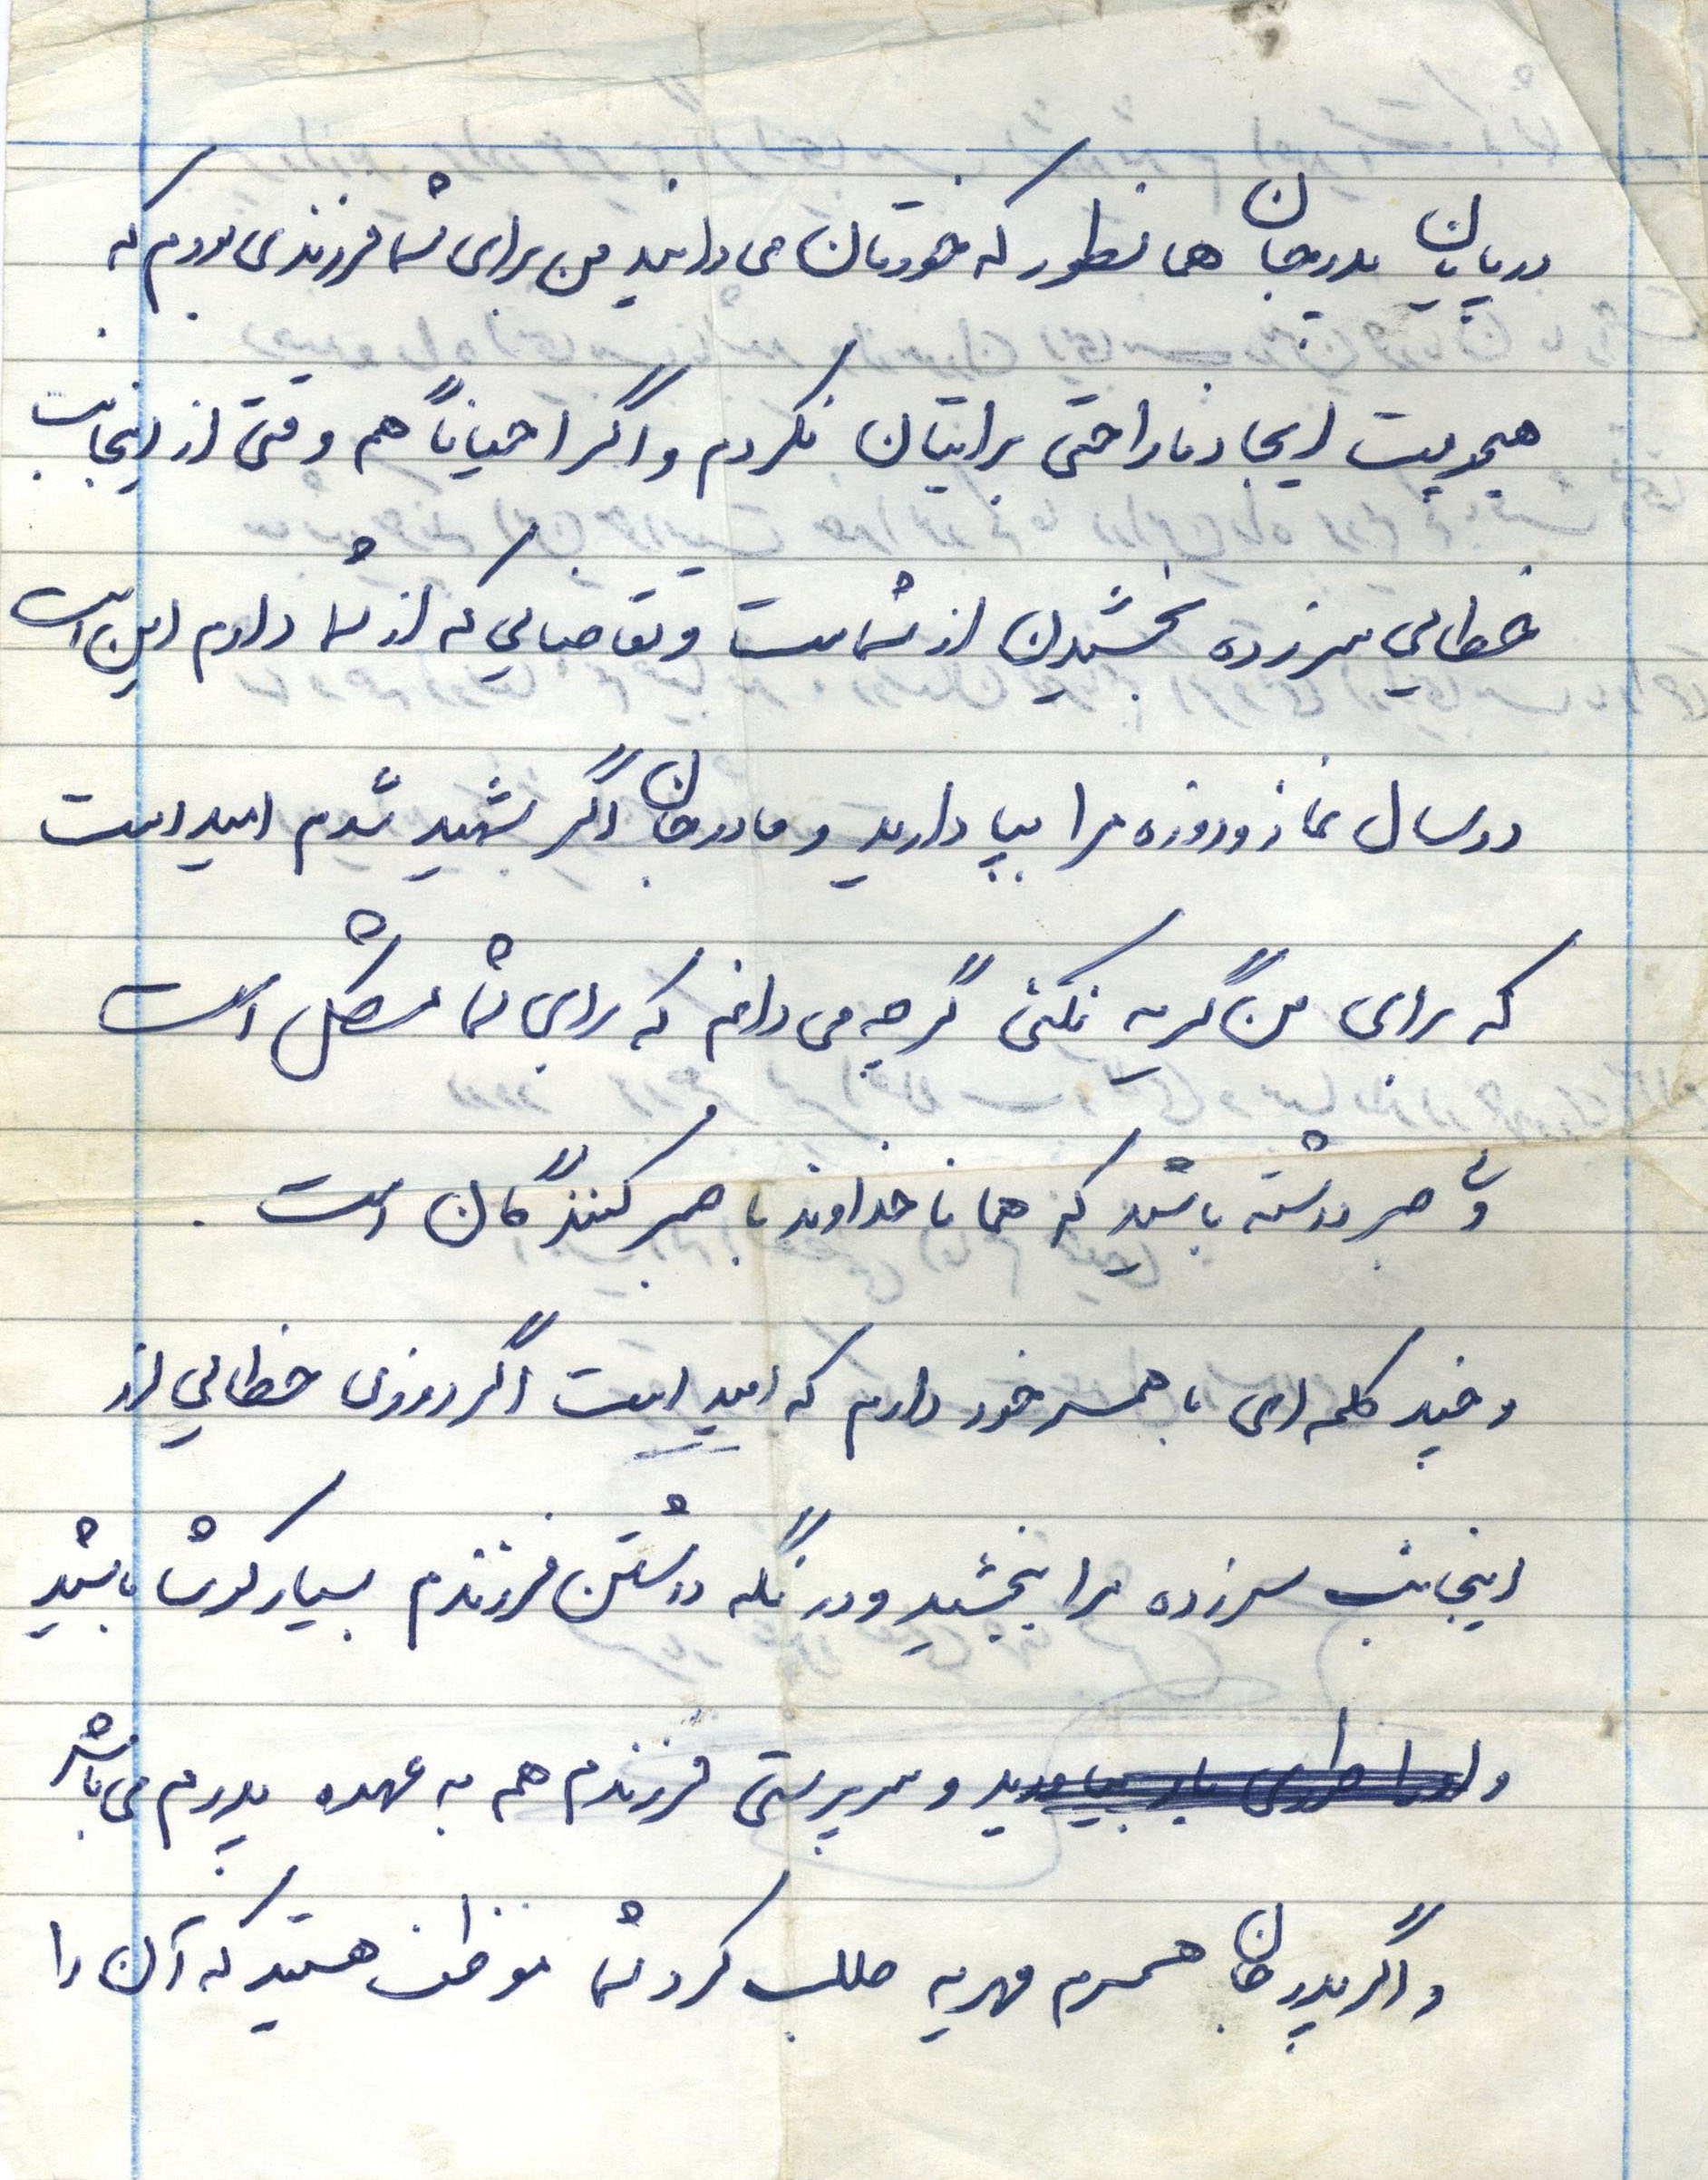 در پایان پدرجان همانطور که خودتان می دانید من برای شما فرزندی بودم که
هیچوقت ایجاد ناراحتی برایتان نکردم و اگر احیاناً هم وقتی از اینجانب
خطایی سرزده بخشیدن از شماست و تقاضایی که از شما دارم این است
دو سال نماز و روزه مرا بپا دارید و مادرجان اگر شهید شدم امید است
که برای من گریه نکنی گرچه می دانم که برای شما مشکل است
ولی صبر داشته باشید که همانا خداوند با صبر کنندگان است .
و چند کلمه ای با همسر خود دارم که امید است اگر روزی خطایی از
اینجانب سرزده مرا ببخشید و در نگه داشتن فرزندم بسیار کوشا باشید
و سرپرستی فرزندم هم به عهده پدرم می باشد
و اگر پدرجان همسرم مهریه طلب کرد شما موظف هستید که آن را